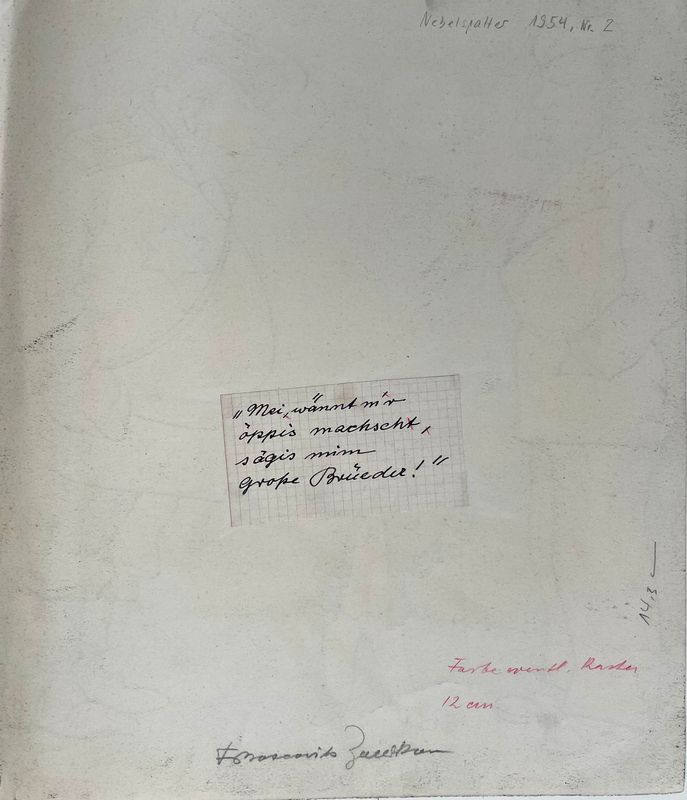 Nebelspalter 1954, Nr. 2
"Mei, wännt m'r
öppis machscht,
sägis mim
große Brüeder!"
14,3
Farbe eventl. Raster
12 cm
F. Boscovits Zollikon